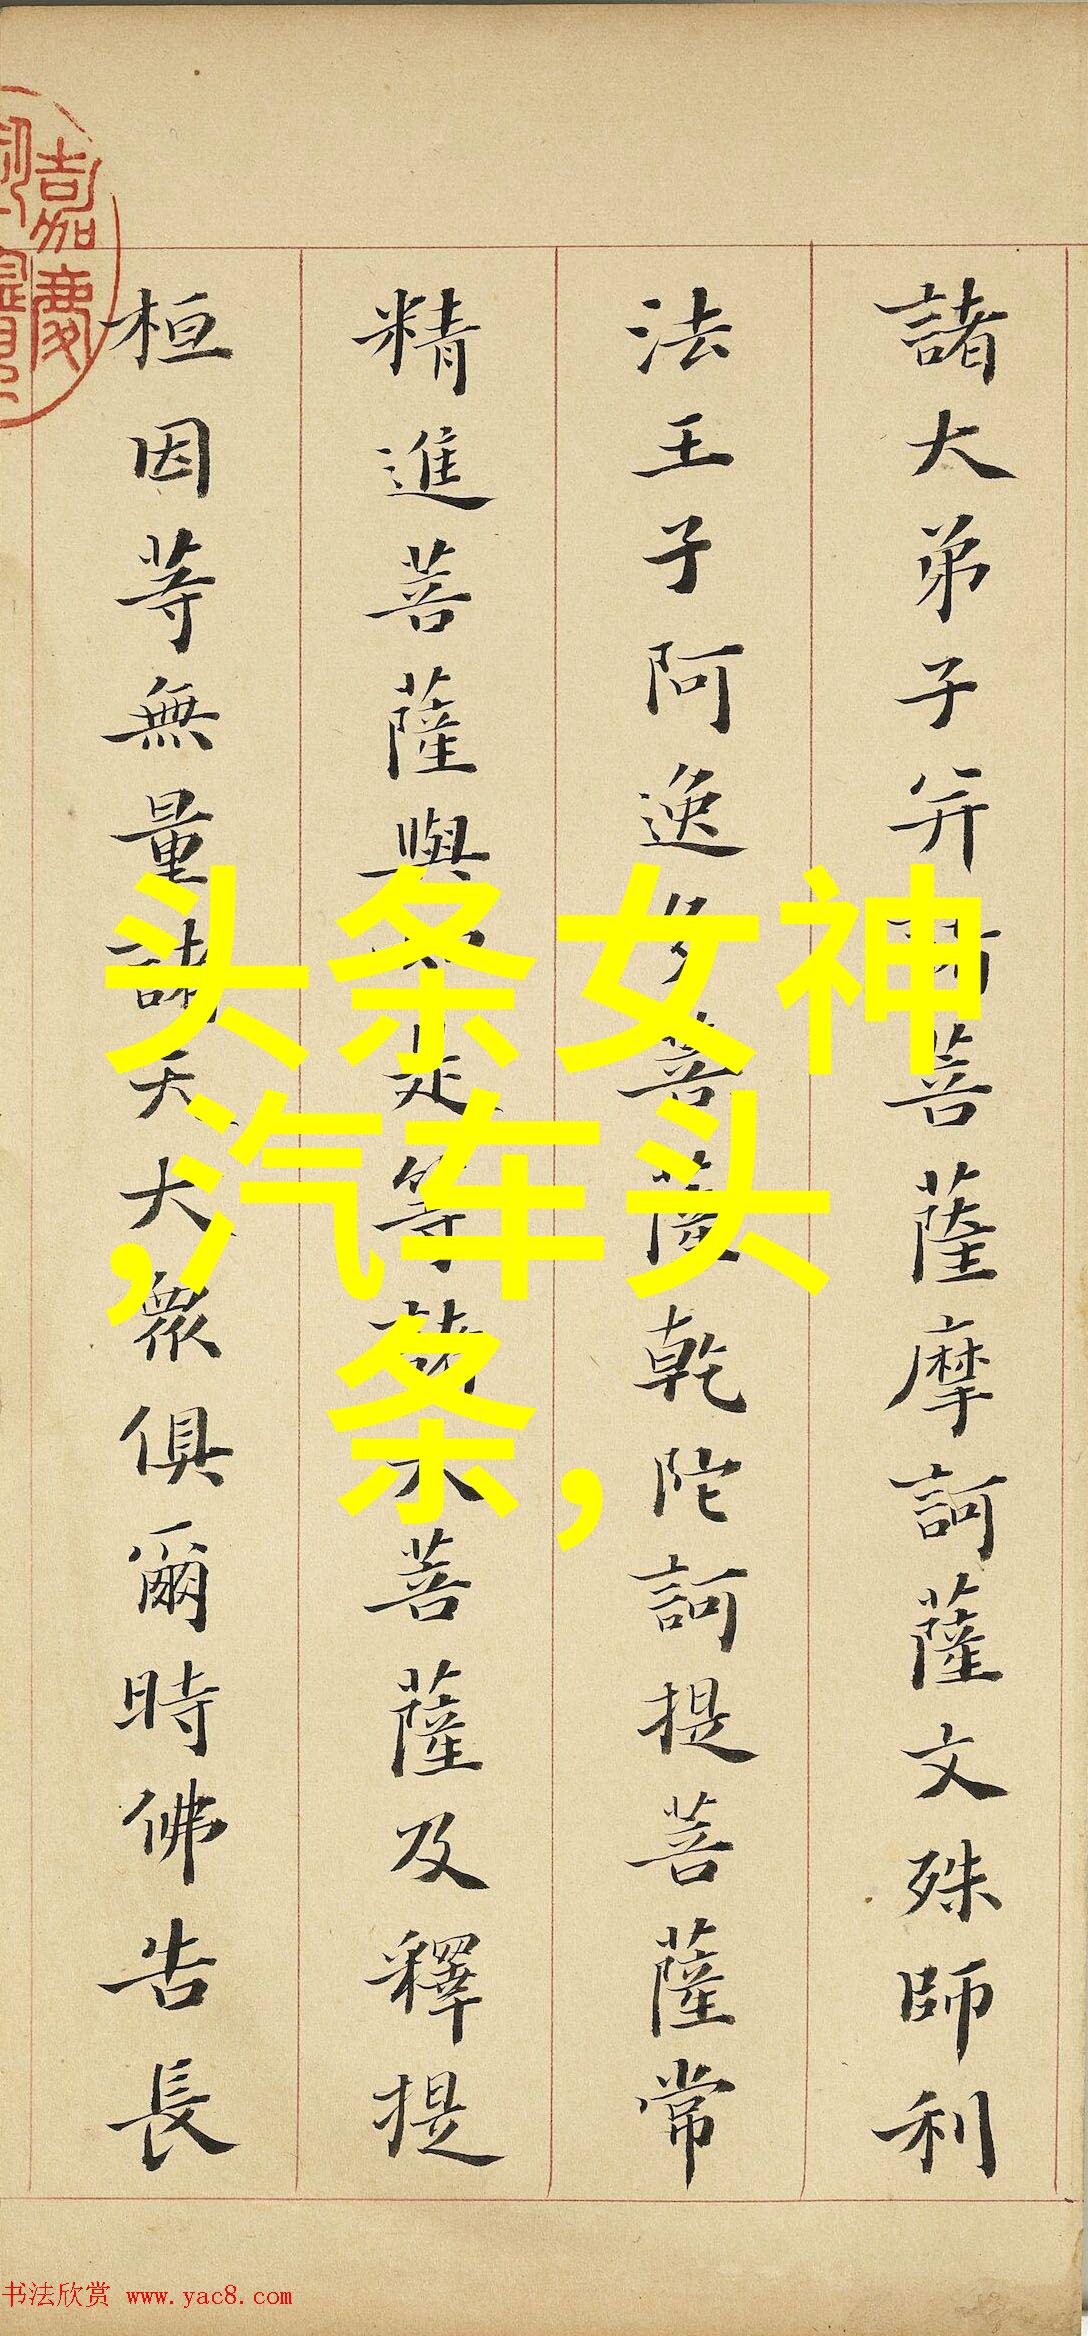 嘉慶
諸大弟子并菩薩摩訶薩文殊師利
法王子阿逸多菩薩乾陀訶提菩薩常
精進菩薩與是等菩薩及釋提
桓因等無量諸天大眾俱爾時佛告長
头条女神
,汽车头
条,
书法欣赏 www.yac8.com